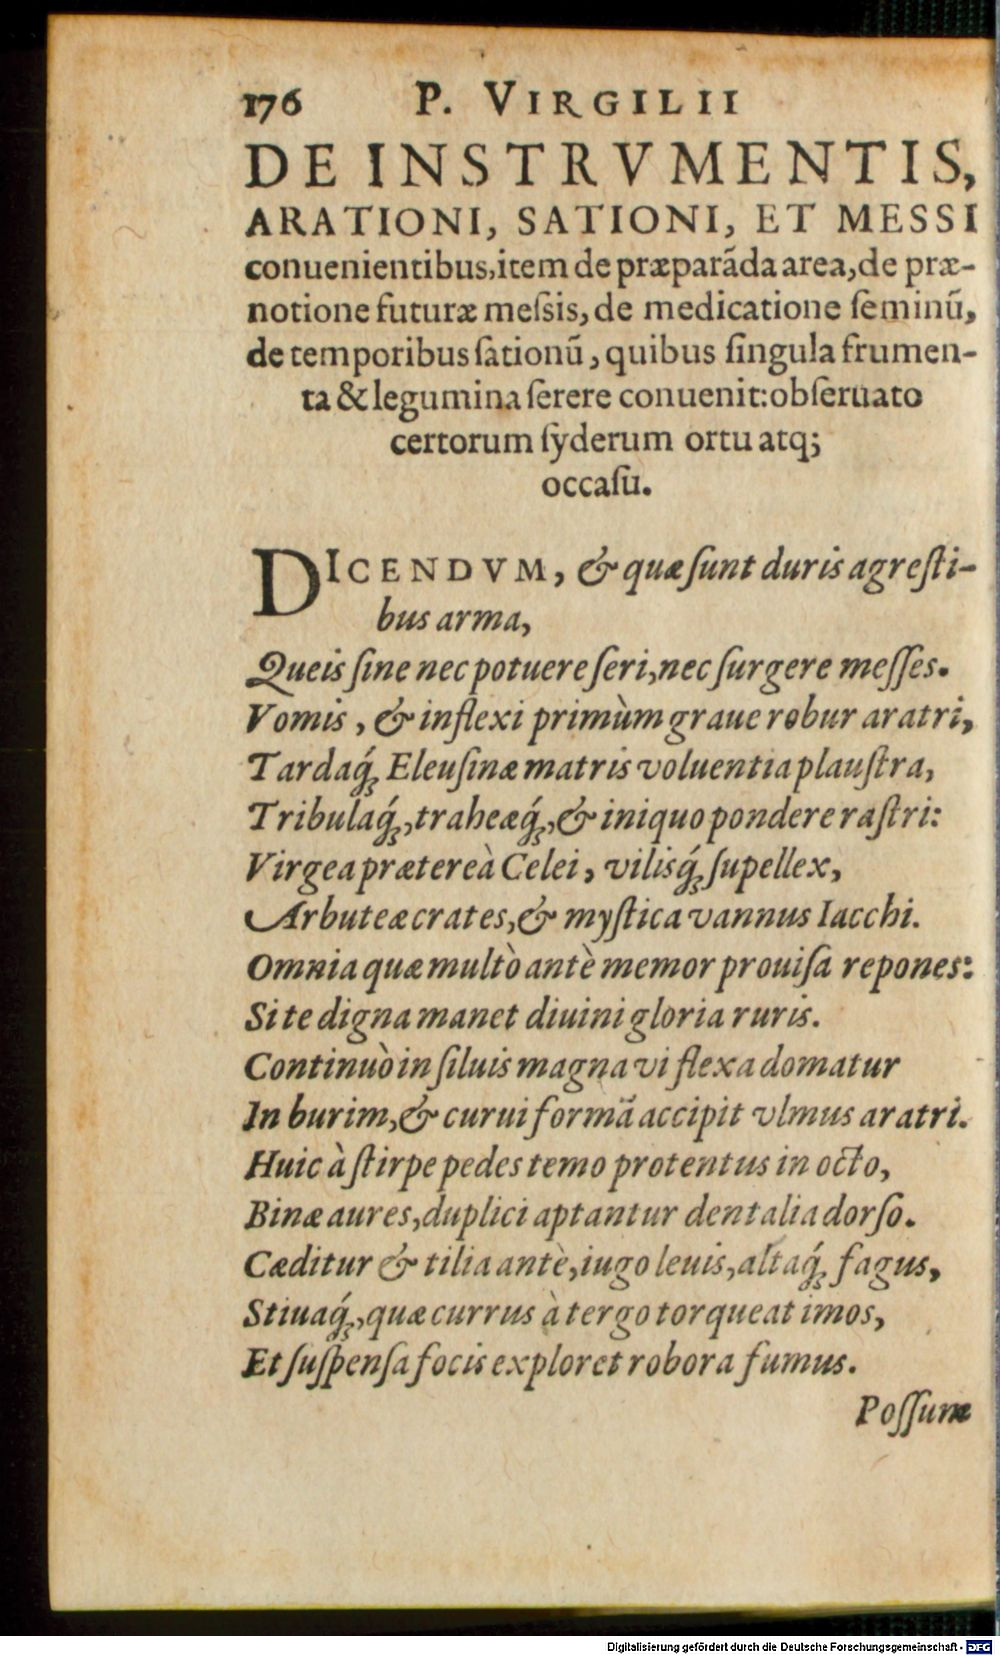 176 P. VIRGILII
DE INSTRVMENTIS,
ARATIONI, SATIONI, ET MESSI
conuenientibus, item de præparãda area, de præ-
notione futuræ meſsis, de medicatione ſeminũ,
de temporibus ſationũ, quibus ſingula frumen-
ta & legumina ſerere conuenit: obſeruato
certorum ſyderum ortu atq;
occaſu.
DICENDVM, & quæ ſunt duris agreſti-
bus arma,
Queis ſine nec potuere ſeri, nec ſurgere meſſes.
Vomis, & inflexi primùm graue robur aratri,
Tardaq́; Eleuſinæ matris voluentia plauſtra,
Tribulaq́;, traheæq́;, & iniquo pondere raſtri:
Virgea prætereà Celei, vilisq́; ſupellex,
Arbuteæ crates, & myſtica vannus Iacchi.
Omnia quæ multò antè memor prouiſa repones:
Si te digna manet diuini gloria ruris.
Continuò in ſiluis magna vi flexa domatur
In burim, & curui formã accipit vlmus aratri.
Huic à ſtirpe pedes temo protentus in octo,
Binæ aures, duplici aptantur dentalia dorſo.
Cæditur & tilia antè, iugo leuis, altaq́; fagus,
Stiuaq́;, quæ currus à tergo torqueat imos,
Et ſuſpenſa focis exploret robora fumus.
Poſſum
Digitalisierung gefördert durch die Deutsche Forschungsgemeinschaft - DFG